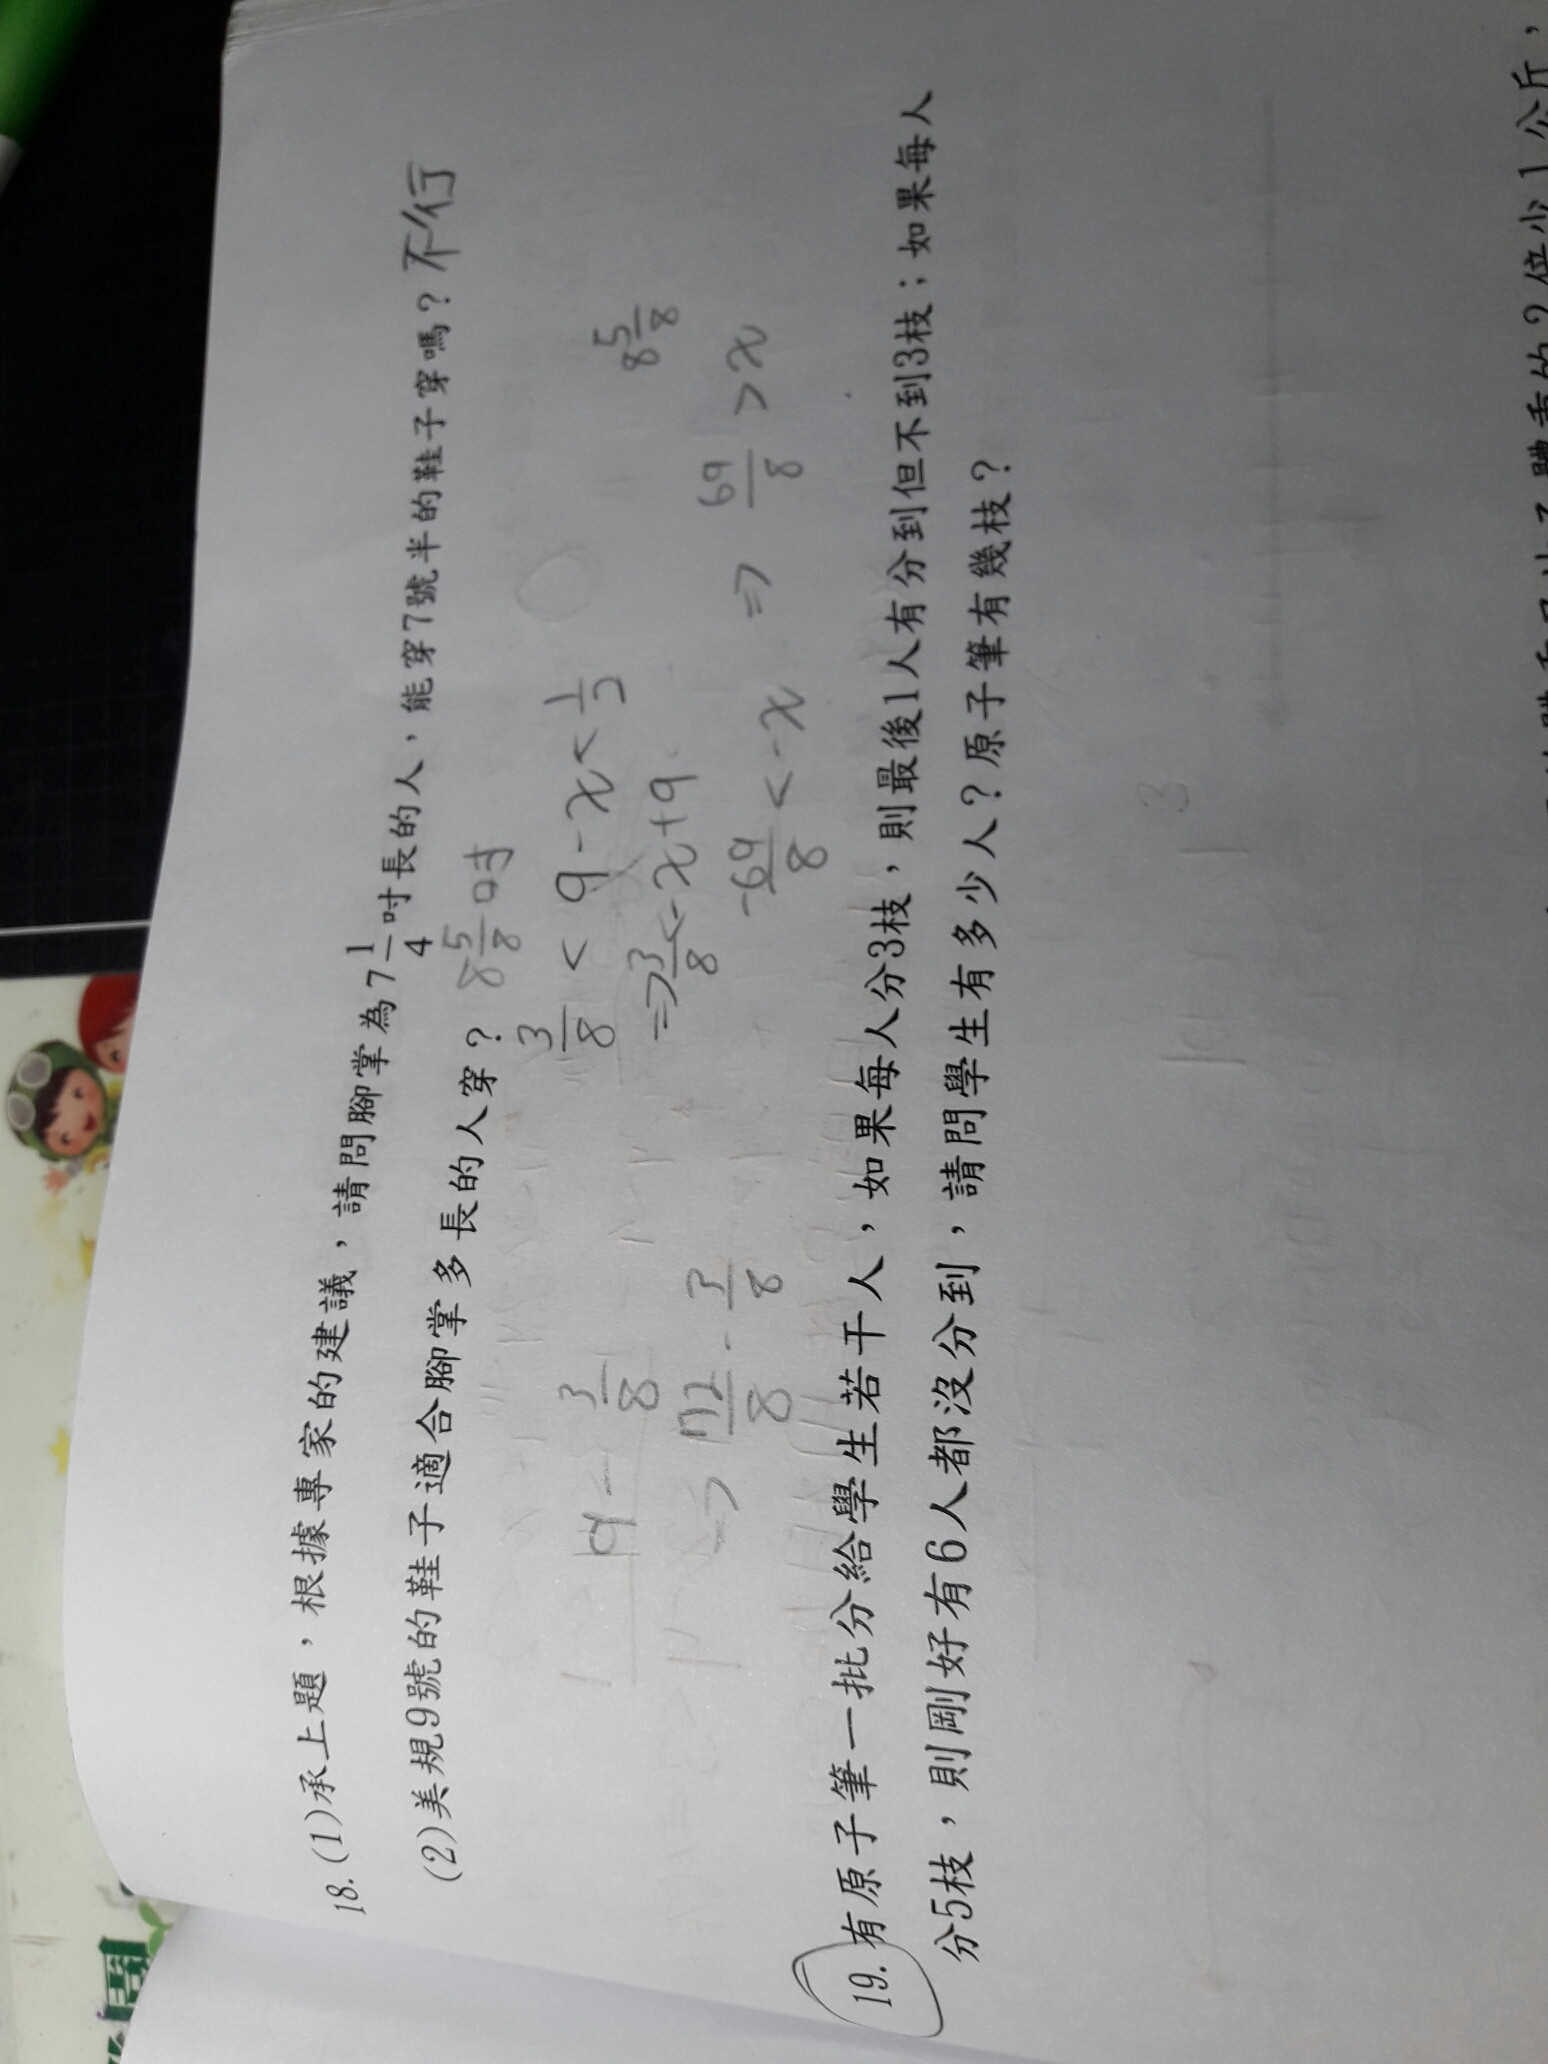 18.(1)承上題，根據專家的建議，請問腳掌為7 1/4 吋長的人，能穿7號半的鞋子穿嗎？不行
(2)美規9號的鞋子適合腳掌多長的人穿？ 8 5/8 吋
3/8 < 9-x < 1/2
9 - 3/8
⇒ 3/8 < -x+9
8 5/8
⇒ 72/8 - 3/8
-69/8 < -x ⇒ 69/8 > x
19.有原子筆一批分給學生若干人，如果每人分3枝，則最後1人有分到但不到3枝；如果每人
分5枝，則剛好有6人都沒分到，請問學生有多少人？原子筆有幾枝？